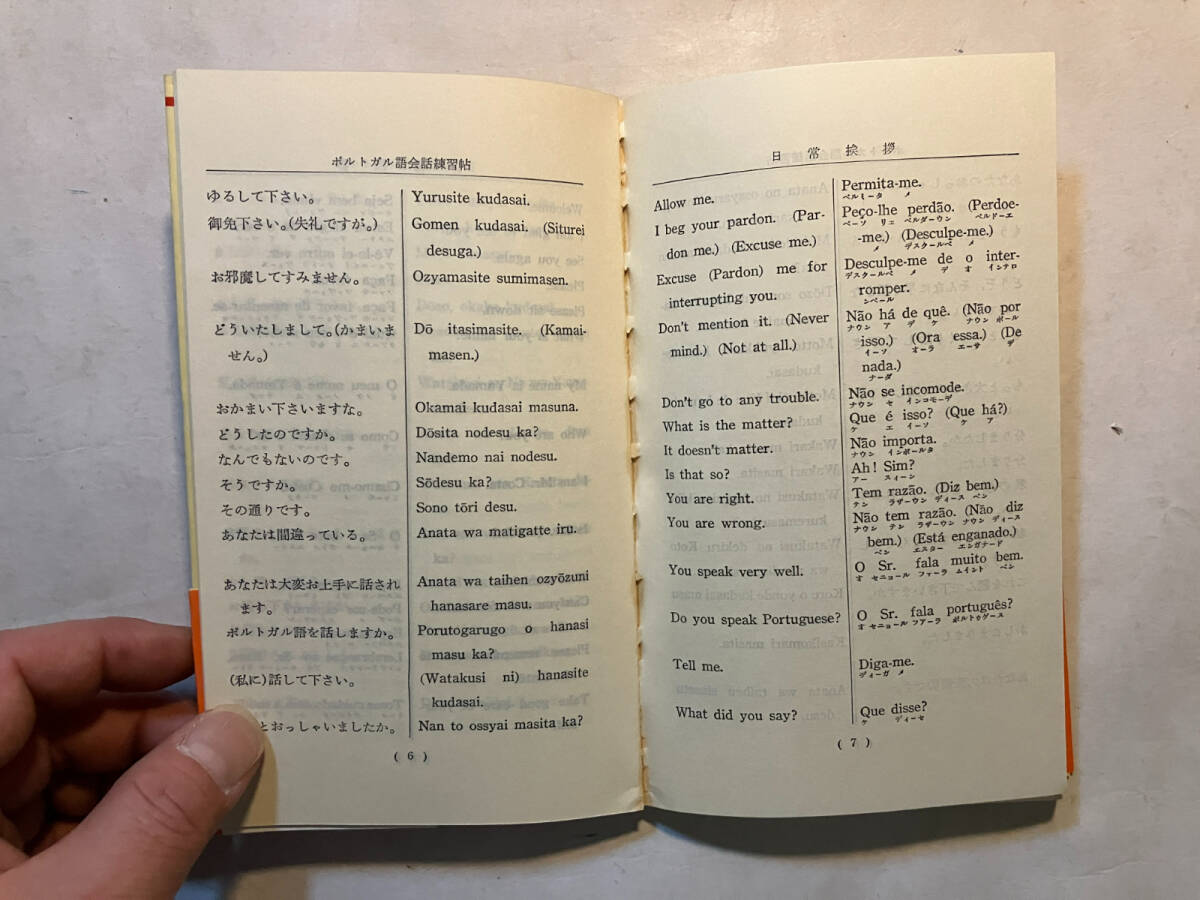 ポルトガル語会話練習帖
ゆるして下さい。
御免下さい。(失礼ですが。)
お邪魔してすみません。
どういたしまして。(かまいま
せん。)
おかまい下さいますな。
どうしたのですか。
なんでもないのです。
そうですか。
その通りです。
あなたは間違っている。
あなたは大変お上手に話され
ます。
ポルトガル語を話しますか。
(私に)話して下さい。
とおっしゃいましたか。
Yurusite kudasai.
Gomen kudasai. (Siturei
desuga.)
Ozyamasite sumimasen.
Dō itasimasite. (Kamai-
masen.)
Okamai kudasai masuna.
Dōsita nodesu ka?
Nandemo nai nodesu.
Sōdesu ka?
Sono tōri desu.
Anata wa matigatte iru.
Anata wa taihen ozyōzuni
hanasare masu.
Porutogarugo o hanasi
masu ka?
(Watakusi ni) hanasite
kudasai.
Nan to ossyai masita ka?
( 6 )
日常挨拶
Allow me.
I beg your pardon. (Par-
don me.) (Excuse me.)
Excuse (Pardon) me for
interrupting you.
Don't mention it. (Never
mind.) (Not at all.)
Don't go to any trouble.
What is the matter?
It doesn't matter.
Is that so?
You are right.
You are wrong.
You speak very well.
Do you speak Portuguese?
Tell me.
What did you say?
Permita-me.
ペルミータ メ
Peço-lhe perdão. (Perdoe-
ペーソ リェ ペルダーウン ペルドーエ
-me.) (Desculpe-me.)
メ デスクールペ メ
Desculpe-me de o inter-
デスクールペ メ デ オ インテロ
romper.
ンペール
Não há de quê. (Não por
ナウン ア デ ケ ナウン ポール
isso.) (Ora essa.) (De
イーソ オーラ エーサ デ
nada.)
ナーダ
Não se incomode.
ナウン セ インコモーデ
Que é isso? (Que há?)
ケ エ イーソ ケ ア
Não importa.
ナウン インポールタ
Ah! Sim?
アー スィーン
Tem razão. (Diz bem.)
テン ラザーウン ディース ベン
Não tem razão. (Não diz
ナウン テン ラザーウン ナウン ディース
bem.) (Está enganado.)
ベン エスター エンガナード
O Sr. fala muito bem.
オ セニョール ファーラ ムイント ベン
O Sr. fala português?
オ セニョール フアーラ ポルトゥゲース
Diga-me.
ディーガ メ
Que disse?
ケ ディーセ
( 7 )